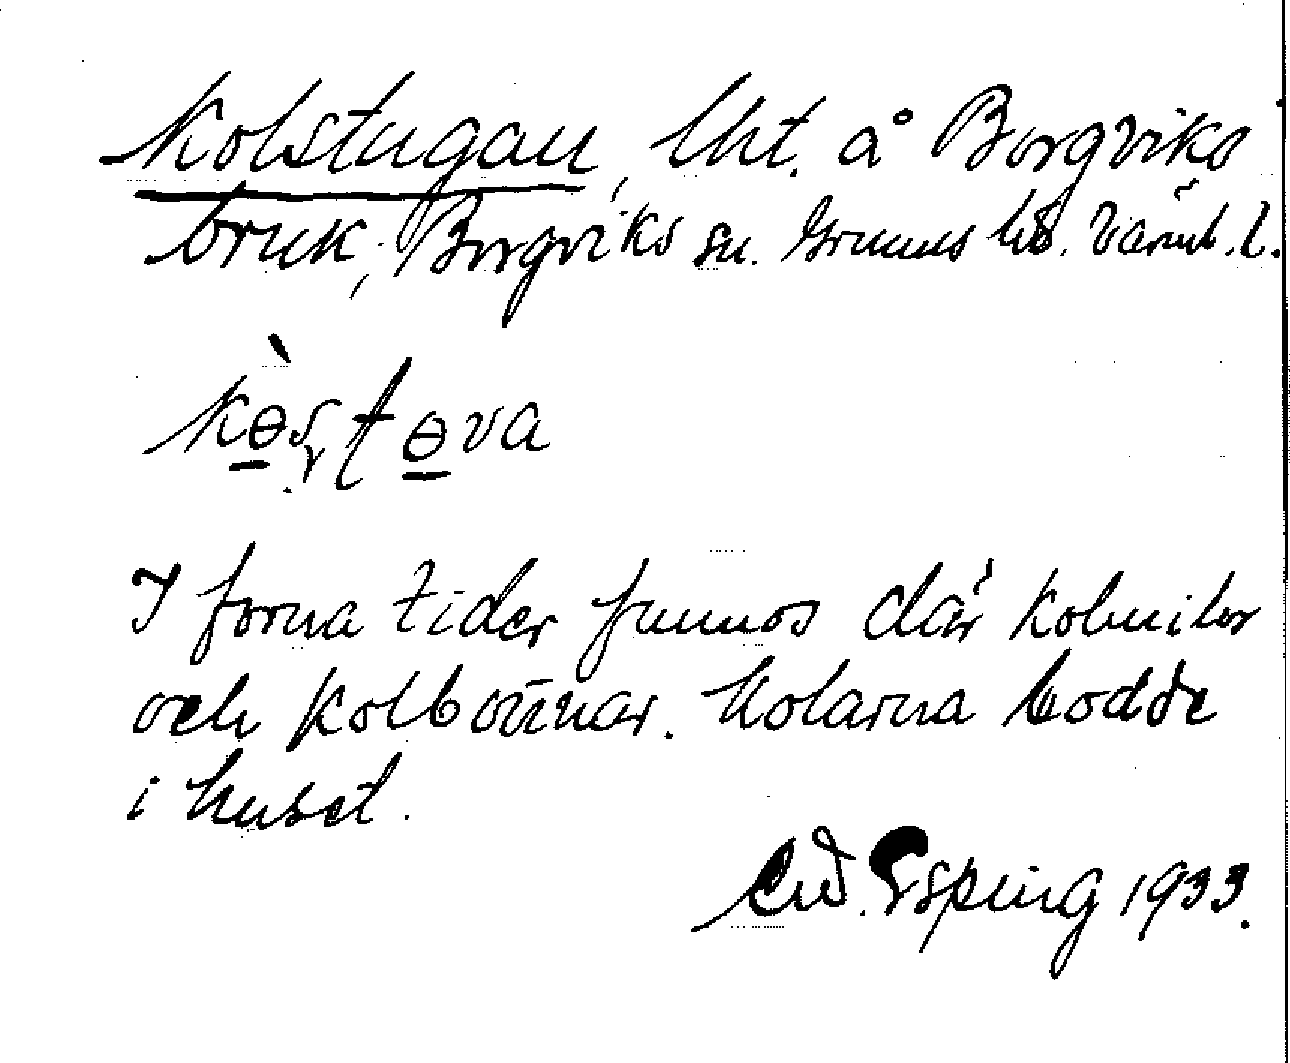 Kolstugan, lht. å Borgviks
bruk, Borgviks sn. Grums hd. Värml. l.
kɵ̀ʂtɵva
I forna tider funnos där kolmilor
och kolbottnar. Kolarna bodde
i huset.
Esping 1933.